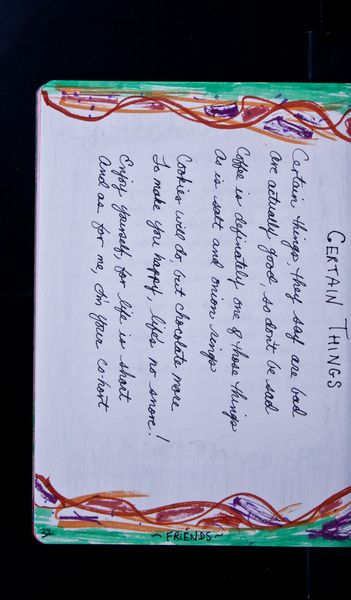 CERTAIN THINGS
Certain things, they say are bad
are actually good, so don't be sad
Coffee is definately one of those things
As is salt and onion rings
Cookies will do but chocolate more
To make you happy, life's no snore!
Enjoy yourself, for life is short
And as for me, I'm your co-hort
~ FRIENDS ~
32